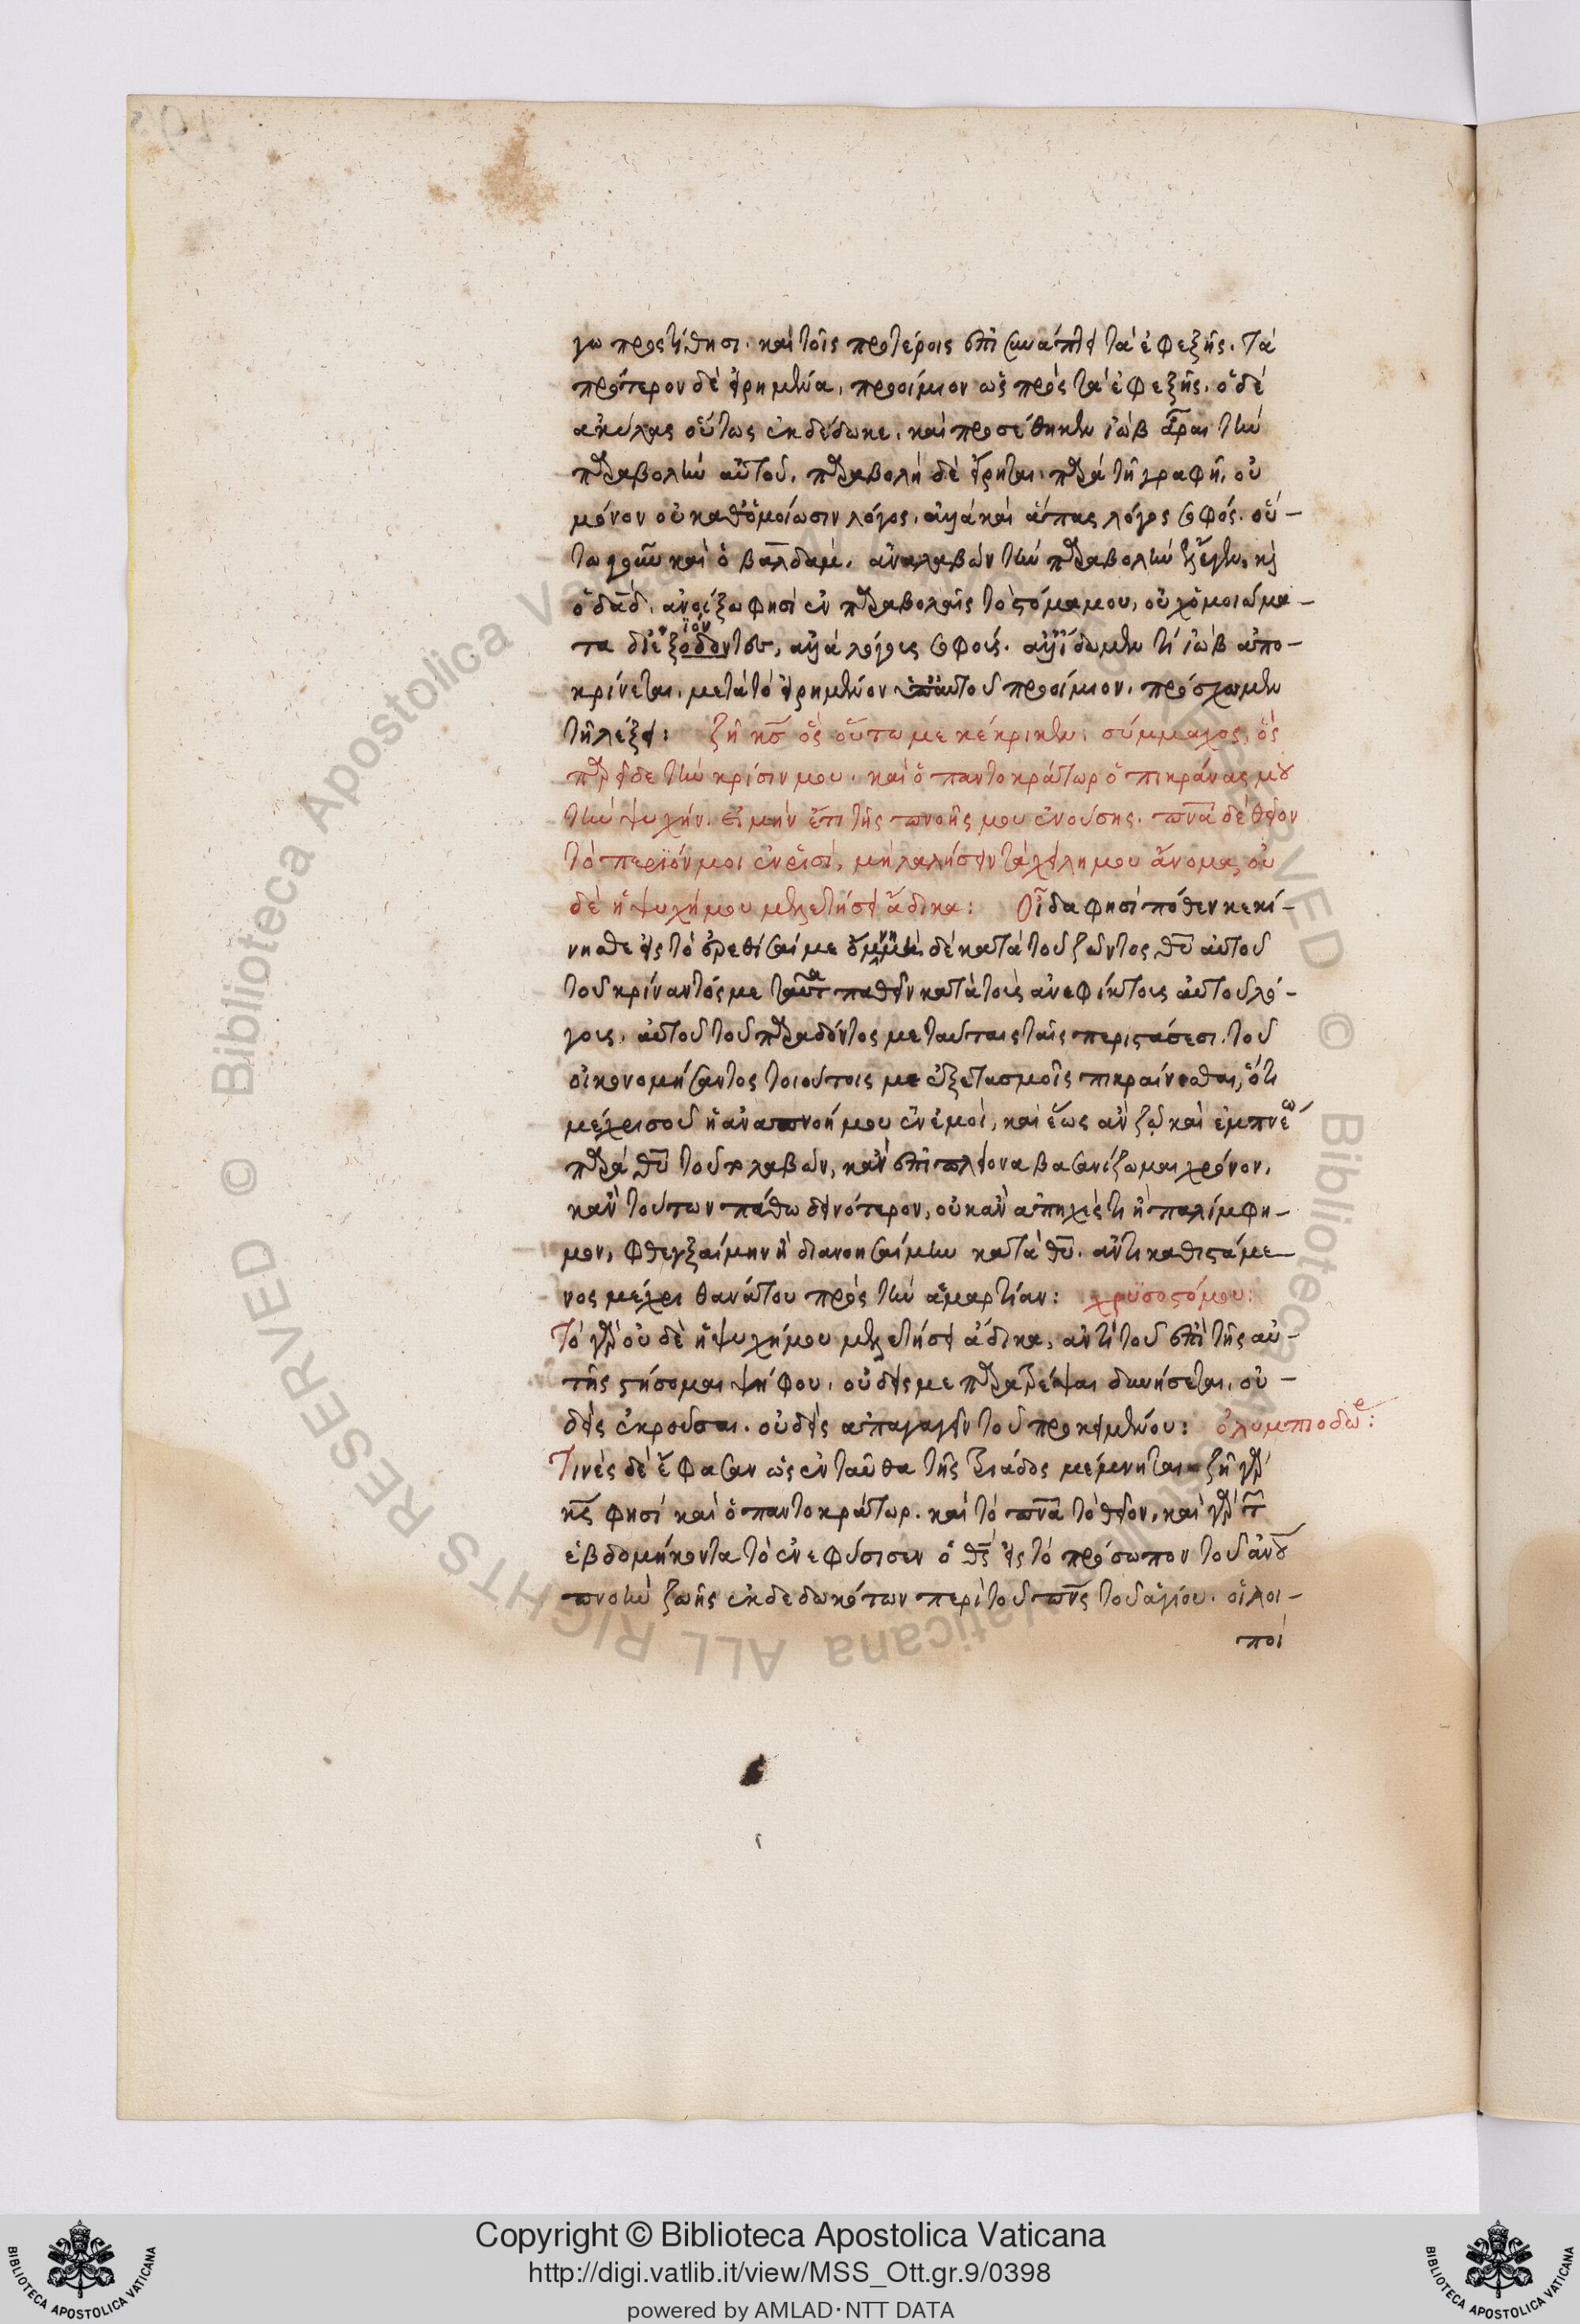 γω προστίθησι. καὶ τοῖς προτέροις ἐπισυνάπτει τὰ ἐφεξῆς. τὰ
πρότερον δὲ εἰρημένα, προοίμιον ὡς πρὸς τὰ ἐφεξῆς. ὁ δὲ
ἀκύλας οὕτως ἐκδέδωκε. καὶ προσέθηκεν ἰὼβ ἆραι τὴν
παραβολὴν αὐτοῦ. παραβολὴ δὲ εἴρηται παρὰ τῇ γραφῇ, οὐ
μόνον ὁ καθ' ὁμοίωσιν λόγος, ἀλλὰ καὶ ἅπας λόγος σοφός. οὕ-
τω γοῦν καὶ ὁ βαλδαμ. ἀναλαβὼν τὴν παραβολὴν ἔλεγεν, κὶ
ὁ δαδ. ἀνοίξω φησὶ ἐν παραβολαῖς τὸ στόμα μου, οὐχ ὁμοιώμα-
τα διεξ ἀλλὰ λόγους σοφούς. ἀλλ' ἴδωμεν τί ἰὼβ ἀπο-
κρίνεται, μετὰ τὸ εἰρημένον αὐτοῦ προοίμιον. πρόσχωμεν
τῇ λέξει: ζῇ κσ ὃς οὕτω με κέκρικεν. σύμμαχος, ὃς
παρεῖδε τὴν κρίσιν μου. καὶ ὁ παντοκράτωρ ὁ πικράνας μου
τὴν ψυχήν. εἰ μὴν ἔτι τῆς πνοῆς μου ἐνούσης. πνα δὲ θεῖον
τὸ περιόν μοι ἐν ῥισὶ, μὴ λαλήσειν τὰ χείλη μου ἄνομα, οὐ
δὲ ἡ ψυχή μου μελετήσει ἄδικα: Οἶδα φησὶ πόθεν κεκί-
νησθε εἰς τὸ ἐρεθίσαι με ὄμνυμι δὲ κατὰ τοῦ ζῶντος θυ αὐτοῦ
τοῦ κρίναντός με ταῦτα παθεῖν κατὰ τοὺς ἀνεφίκτους αὐτοῦ λό-
γους, αὐτοῦ τοῦ παραδόντος με ταύταις ταῖς περιστάσεσι. τοῦ
οἰκονομήσαντος τοιούτοις με ἐξετασμοῖς πικραίνεσθαι, ὅτι
μέχρις οὗ ἡ ἀναπνοή μου ἐν ἐμοὶ, καὶ ἕως ἂν ζῶ καὶ ἐμπνέω
παρὰ θυ τοῦτο λαβὼν, κἂν ἐπὶ πλείονα βασανίζωμαι χρόνον,
κἂν τούτων πάθω δεινότερον, οὐκ ἂν ἀπηχές τι ἢ παλίμφη-
μον, φθεγξαίμην ἢ διανοησαίμην κατὰ θυ. ἀντικαθιστάμε-
νος μέχρι θανάτου πρὸς τὴν ἁμαρτίαν: χρυσοστόμου:
Τὸ γὰρ οὐδὲ ἡ ψυχή μου μελετήσει ἄδικα, ἀντὶ τοῦ ἐπὶ τῆς αὐ-
τῆς στήσομαι ψήφου. οὐδείς με παρατρέψαι δυνήσεται, οὐ-
δεὶς ἐκκροῦσαι. οὐδεὶς ἀπαγαγεῖν τοῦ προκειμένου: ὀλυμπιοδώρ:
Τινὲς δὲ ἔφασαν ὡς ἐνταῦθα τῆς τριάδος μέμνηται. ζῇ γὰρ
κς φησὶ καὶ ὁ παντοκράτωρ. καὶ τὸ πνα τὸ θεῖον, καὶ γὰρ τ
ἑβδομήκοντα τὸ ἐνεφύσησεν ὁ θς εἰς τὸ πρόσωπον τοῦ ἀνου
πνοὴν ζωῆς ἐκδεδωκότων περὶ τοῦ πνς τοῦ ἁγίου. οἱ λοι-
ποὶ
Copyright © Biblioteca Apostolica Vaticana
http://digi.vatlib.it/view/MSS_Ott.gr.9/0398
powered by AMLAD·NTT DATA